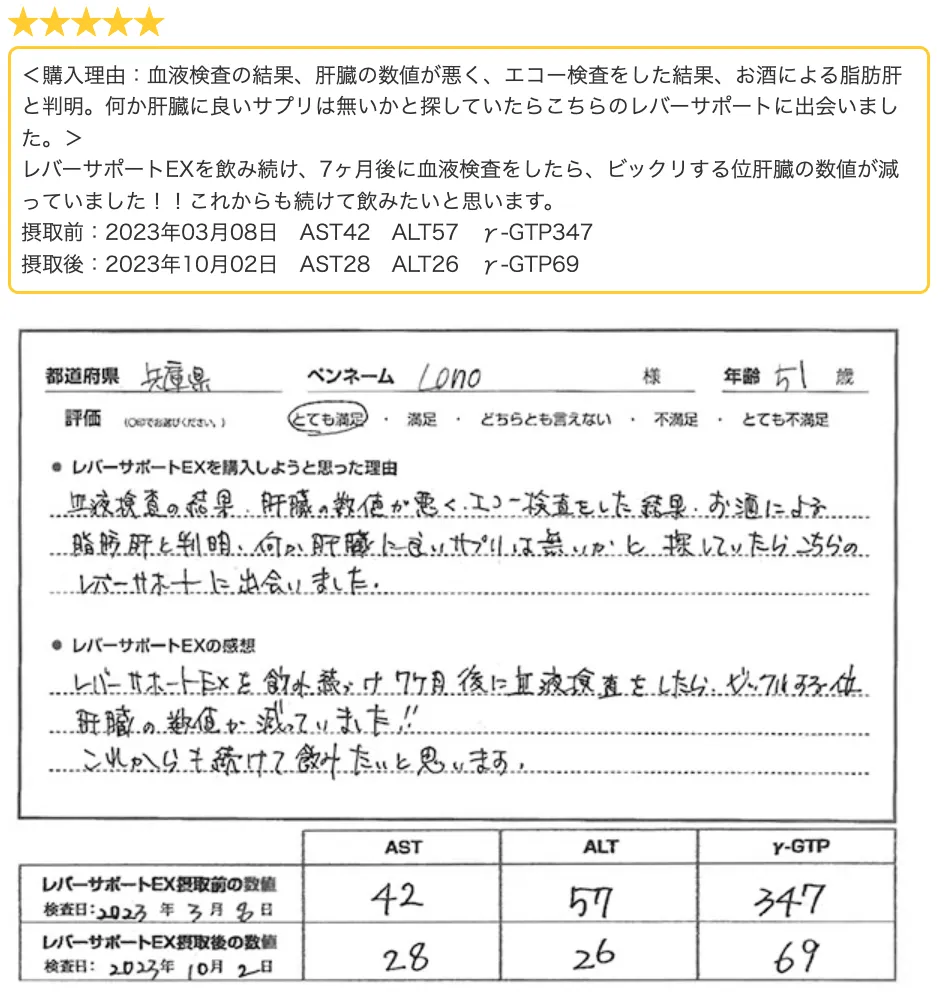 ★★★★★
＜購入理由：血液検査の結果、肝臓の数値が悪く、エコー検査をした結果、お酒による脂肪肝
と判明。何か肝臓に良いサプリは無いかと探していたらこちらのレバーサポートに出会いまし
た。＞
レバーサポートEXを飲み続け、7ヶ月後に血液検査をしたら、ビックリする位肝臓の数値が減
っていました！！これからも続けて飲みたいと思います。
摂取前：2023年03月08日　AST42　ALT57　γ-GTP347
摂取後：2023年10月02日　AST28　ALT26　γ-GTP69
都道府県 兵庫県 ペンネーム Lono 様 年齢 51 歳
評価 (○印でお選びください。) とても満足 ・ 満足 ・ どちらとも言えない ・ 不満足 ・ とても不満足
● レバーサポートEXを購入しようと思った理由
血液検査の結果、肝臓の数値が悪く、エコー検査をした結果、お酒による
脂肪肝と判明、何か肝臓に良いサプリは無いかと探していたらこちらの
レバーサポートに出会いました。
● レバーサポートEXの感想
レバーサポートEXを飲み続け7ケ月後に血液検査をしたら、ビックリする位
肝臓の数値が減っていました!!
これからも続けて飲みたいと思います。
AST ALT γ-GTP
レバーサポートEX摂取前の数値
検査日:2023年3月8日 42 57 347
レバーサポートEX摂取後の数値
検査日:2023年10月2日 28 26 69